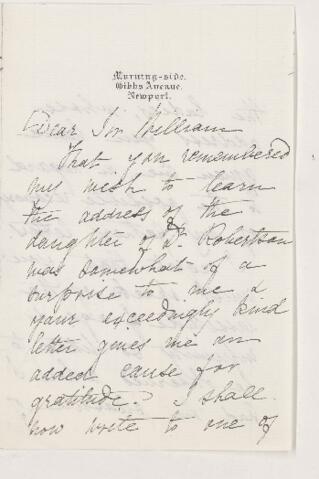 Morning-side.
Gibbs Avenue.
Newport.
Dear Sir William
That you remembered
my wish to learn
the address of the
daughter of Dr Robertson
was somewhat of a
surprise to me &
your exceedingly kind
letter gives me an
added cause for
gratitude. I shall
now write to one of